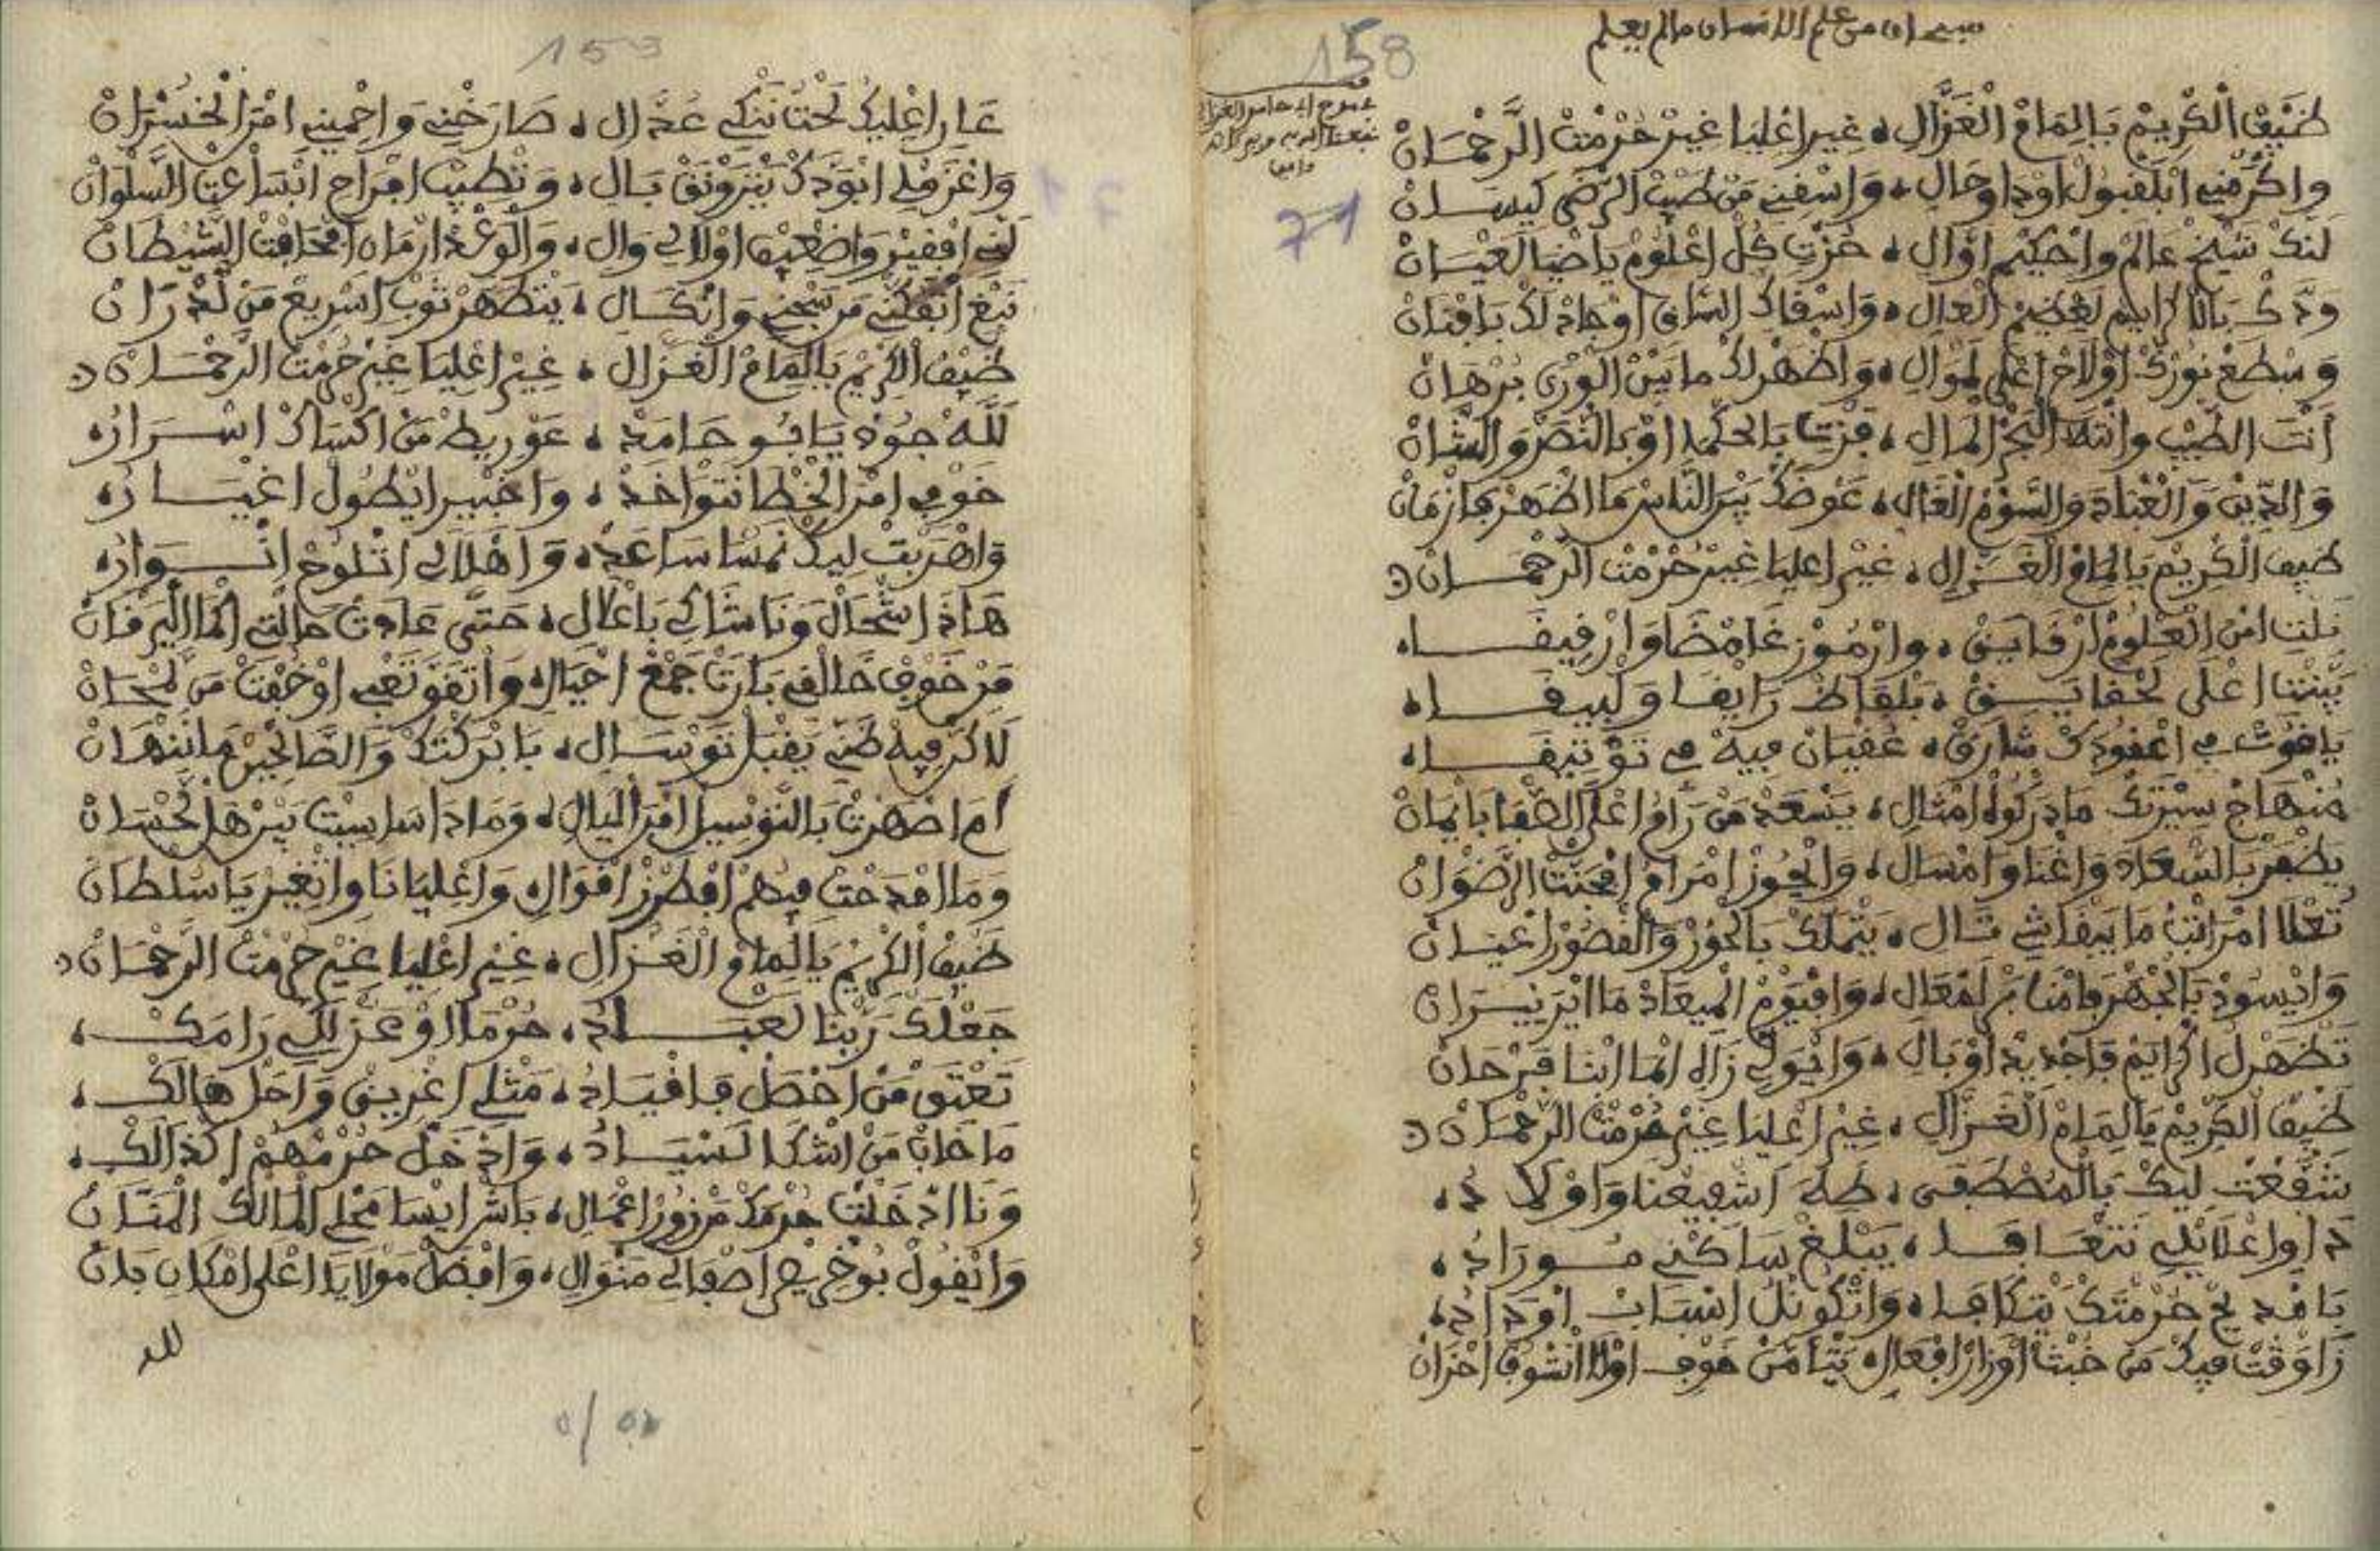 سبحان من علم الانسان مالم يعلم
158
71
ضَيْف الْكْرِيمْ يَالِمَامْ الْغَزَّالِ، غير اعْلِيَا غيرْ حُرْمْتْ الرَّحْمَـانْ
واكْرَمْنِي ابْلَقْبُولْ اوْداوحَالِ، وَاسْقِنِي مَن طَبّْ الرّضَى كيسَـانْ
لَنَّكْ شَيْخْ عَالِمْ واحْكِيمْ اوَّالِ، حُزْتِ كُلّ اعْلُومْ يَاضْيَا لَعْيَـانْ
وَدَّكْ بَالْكْرَايمْ لَعْضِيمْ الْعَالِ، وَاسْقَاكْ السَّاقِ اوْجَادْ لَكْ بَافْنَانْ
وَسْطَعْ نُورَكْ اوْلاَحْ اعْلَى لَمْوَالِ، وَاظْهَرْلَكْ مَا بَيْنْ الْوْرَى بُرْهَانْ
أنْتَ الطّْبِيبْ وانْتَهَ الْبَحْرْ الْمَالِ، فزْتِ بَالحكْمَه اوْ بَالنَّصْرْ والشَّانْ
وَالدِّينْ وَالْقْنَادَ وَالسَّوْمْ الْغَالِ، عَوْضَكْ بَيْن النَّاسْ مَا اظْهَرْ فَازْمَانْ
ضيف الْكْرِيمْ يَالِمَامْ الْغَـزَّالِ، غيْر اعليا غيْر حُرْمْت الرّحْمَـانْ
نلتِ امْن الْعْلُومْ ارْقَايَقْ، وارْمُوزْ غَامْضَا وَارْفِيقَـا،
بَيَّنْتْنَا اعْلَى لَحْقَايَـقْ، بَلْفَاظْ رَايقَا وَلْبِيقَـا،
يَاقُوتْ فِي اعْقُودَكْ شَارَقْ، عُقْيَانْ فِيهْ فِي تَوْثِيقَـا،
مَنْهَاجْ سِيرْتَكْ مَادَرْكُوهْ امْثَالِ، يَسْعَدْ مَنْ رَامُ اعْلَى الصّْفَا بَايْمَانْ
يَظْهَرْ بالسّْعَادَ وَاغْنَا وامْسَالِ، وَايْحُوزْ امْرَامُ افْجَنّْتْ الرَّضْوَانْ
تَعْلاَ امْرَاتْبُ مَا يَبْقَاشِي تَـالِ، يَتْمَلَّكْ بَالْحُورْ وَالْقْصُورْ اعْيَـانْ
وَايْسُودْ بَالْجْهَرْ فَامْنَابَرْ لَمْعَالِ، وَافْيَوْمْ الْمِيعَادْ مَا ايْرَ نِيـرَانْ
تَظْهَرْلُ اكْرَايَمْ فَاجْدِيدْ اوْ بَالِ، وَايْوَلِّي زَاهِ لَمَّا ابْنَا فَرْحَانْ
ضَيْف الْكْرِيمْ يَالِمَامْ الْغَـزَّالِ، غيْر اعْليَا غيْر حُرْمْتْ الرَّحْمَـانْ
تَشَفَّعْتْ لِيكْ بَالْمُصْطَفَى، طهَ اشْفِيعْنَا وَاوْلاَدُ،
دَاوِ اعْلاَيْلِي نَتْعَافَـا، يَبْلَغْ سَاكْنِي مُـورَادُ،
يَا مْدِيحْ حُرْمْتَكْ نَتْكَافَـا، وَاتْكُونْلُ اسْبَابْ اوْرَدَادُ،
زَاوَقْتْ فِيكْ مَنْ خُبْثْ اوْزَارْ افْعَالِ، يَتَّامَّنْ خَوْفِي اوْلاَ انْشُوفْ احْزَانْ
153
عَارِ اعْلِيكْ لَحْتْ نَنْكِي عَدَّالِ، صَارَخْنِي وَاحْمِينِي امْنْ الْخُسْرَانْ
وَاعْزَمْلِي ابْوَدَّكْ يَتْزَوْنَقْ بَـالِ، وَتْطِيبْ افْرَاحِ ابْسَاعْتْ السَّلْوَانْ
لَنِّي افْقِيرْ وَاضْعِيفْ اوْلاَ لِي وَالِ، وَالْوَعْدْ ارْمَانِ افْحَافْتْ الشِّيطَانْ
نَبْغِ اتْفَكّْنِي مَن سَجْنِي وَانْكَـالِ، يَتْطَهَّرْ ثَوْبِ اسْرِيعْ مَنْ لَدْرَانْ
ضَيْف الْكْرِيمْ يَالِمَامْ الْغَـزَّالِ، غيْر اعْلِيَا غيْر حُرْمْتْ الرَّحْمَـانْ
لَلَّهْ جُودْ يَابُو حَامَدْ، عَوّْرِيطْ مَنْ اكْسَاكْ اسْـرَارُ،
خَوْفِي امْنْ الْخْطَا نَتْوَاخَدْ، وَاخْبِير ايْطُولْ اغْيَـارُ،
وَاهْرَبْت لِيكْ نَمْشَا سَاعَدْ، وَاهْلاَلِي اتْلُوحْ انْـوَارُ،
هَاذَا شْحَالْ وَنَا شَاكِي بَاعْلاَلِ، حَتَّى عَادتْ حَالْتِي اكْمَا الْيَرَقَانْ
مَنْ خَوْفْ خَالْقِي بَارَتْ جَمْعْ احْيَالِ، وَاتْقَوَّ تَعْبِي اوْخَفْتْ مَن لَمْحَانْ
لَاكَنْ فِيهْ ظَنِّي يَقْبَلْ تَوْسَـالِ، بَابَرْكْتَكْ وَالصَّالْحِينْ مَا نَنْهَانْ
امَا ضَهَرْتْ بَالتَّوْسِيلْ امْنْ الّيَالِ، وَمَادَاسَاسِيتْ بَيْن هَلْ لَحْسَانْ
وَمَا امْدَحْتْ فِيهُمْ افْطَرْزْ اقْوَالِ، وَاعْلِيَانَا وَاتْغِيرْ يَاسُلْطَانْ
ضَيْف الْكْرِيمْ يَالِمَامْ الْغَـزَّالِ، غيْر اعْلِيَا غيْر حُرْمْتْ الرَّحْمَـانْ
جَعْلَكْ رَبّْنَا لَعْبَـادُ، حُرْمَا اوْ عَزّْ لَلِّي رَامَكْ،
تَعْتَقْ مَنْ احْصَلْ فَاقْيَـادُ، مَثْلِي اغْرِيقْ وَاحَلْ هَالَكْ،
مَا خَابْ مَنْ اشْكَا لَسْيَـادُ، وَادْخَلْ حُرْمْهُمْ اكْذَالَكْ،
وَنَا ادْخَلْتْ حُرْمَكْ مَنْ زُورْ اعْمَالِ، بَاشْ ايْسَامَحْلِي الْمَالَكْ الْمَنَّـانْ
وَانْقُولْ بُوخْرِيص اصْفَالِي مَنْوَالِ، وَافْضَلْ مَوْلاَيَا اعْلَى امْكَانِ بَانْ
لله